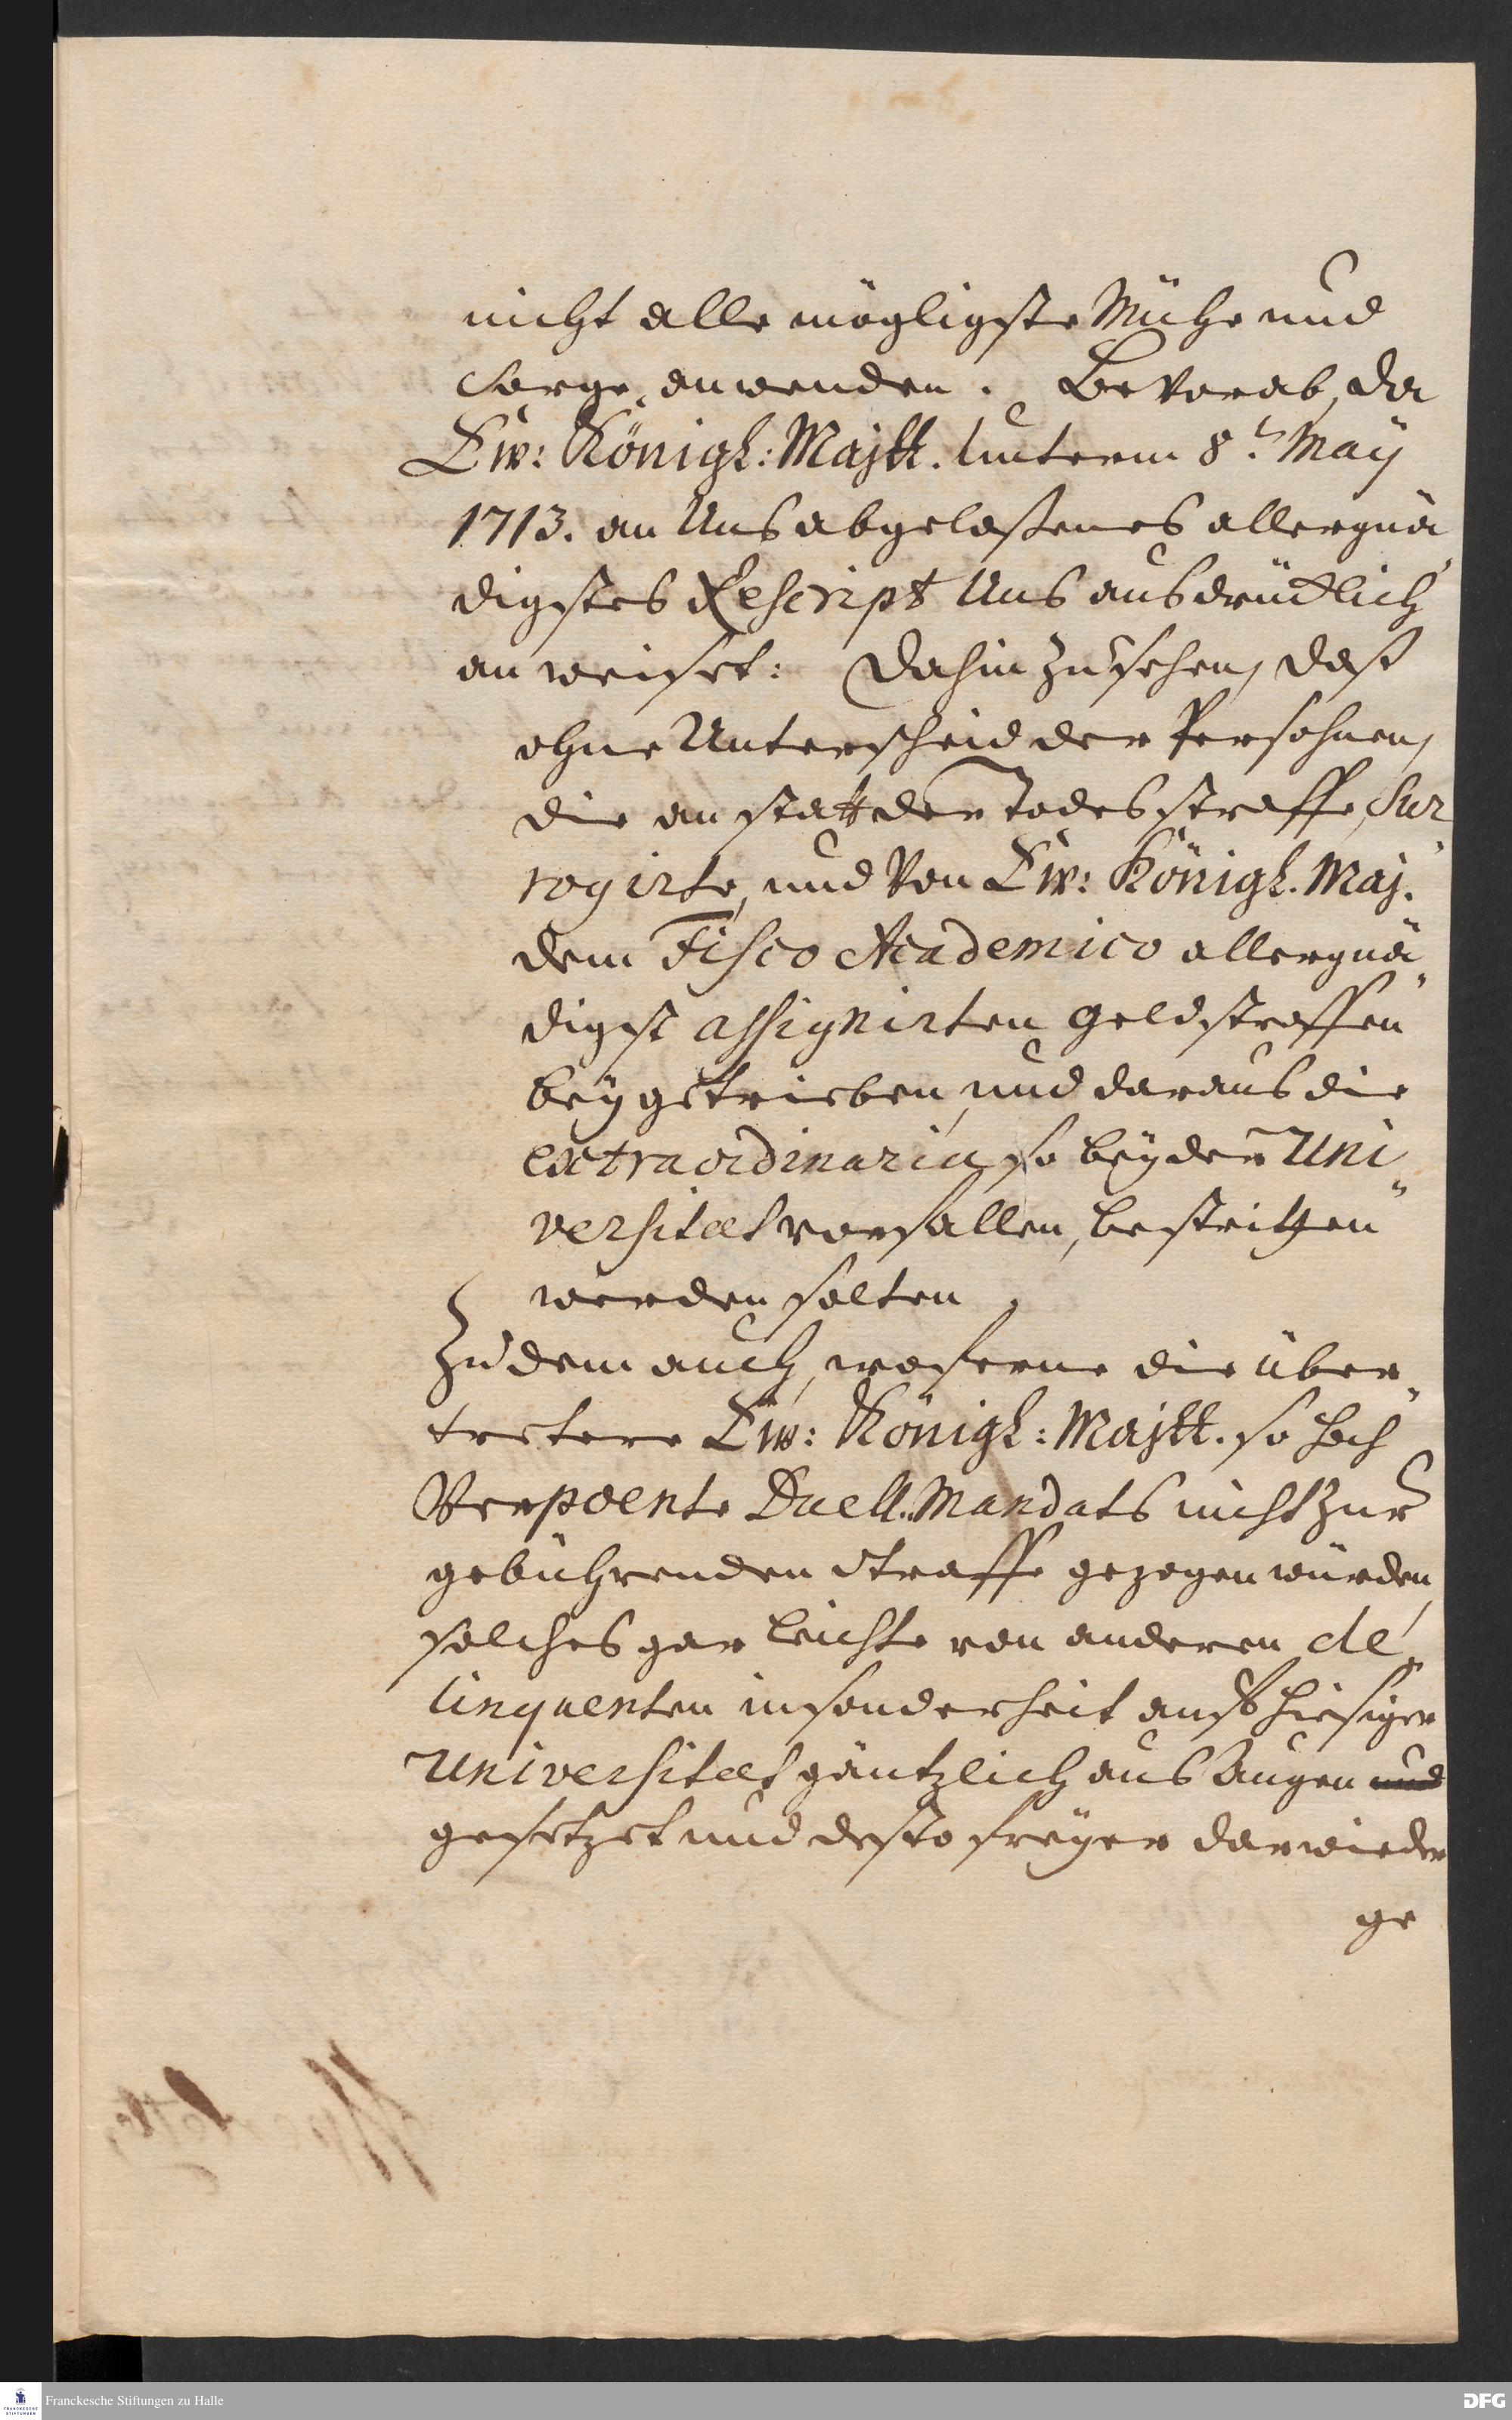 nicht alle mögligste Mühe und
Sorge, anwenden. Bevorab, da
Ew: Königl: Majtt. Unterm 8t. Maÿ
1713. an Uns abgelaßenes allergnä
digstes Rescript Uns ausdrücklich
anweiset: Dahin zu sehen, daß
ohne Unterscheid der Persohnen,
die an statt der Todes straffe, sur
rogirte, und Von Ew: Königl. Maj.
dem Fisco Academico allergnä„
digst assignirten Geldstraffen
beÿgetrieben, und daraus die
extraordinaria, so beÿ der Uni„
versitæt vorfallen, bestritten
werden solten.
Zu dem auch, woferne die über„
tretere Ew: Königl: Majtt. so hoch
Verpoente Duell-Mandats nicht zur
gebührenden Straffe gezogen würden,
solches gar leichte von anderen de„
linquenten insonderheit auf hiesiger
Universitæt gäntzlich aus Augen und
gesetzet und desto freÿer darwieder
ge

Franckesche Stiftungen zu Halle
DFG